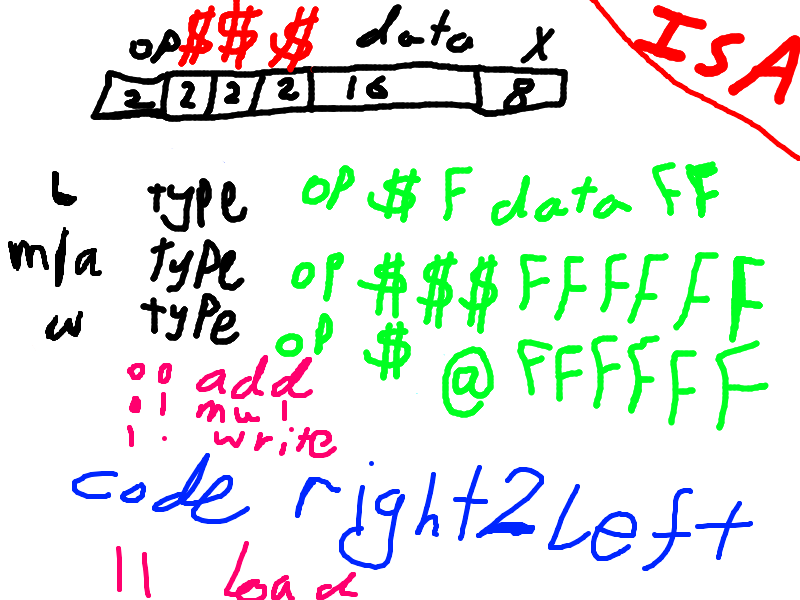 op $ $ $ data X
ISA
2 2 2 2 16 8
L type op $ F data FF
m/a type op $ $ $ F F F F F F
w type op $ @ F F F F F F
00 add
01 mul
1. write
code right2left
11 load